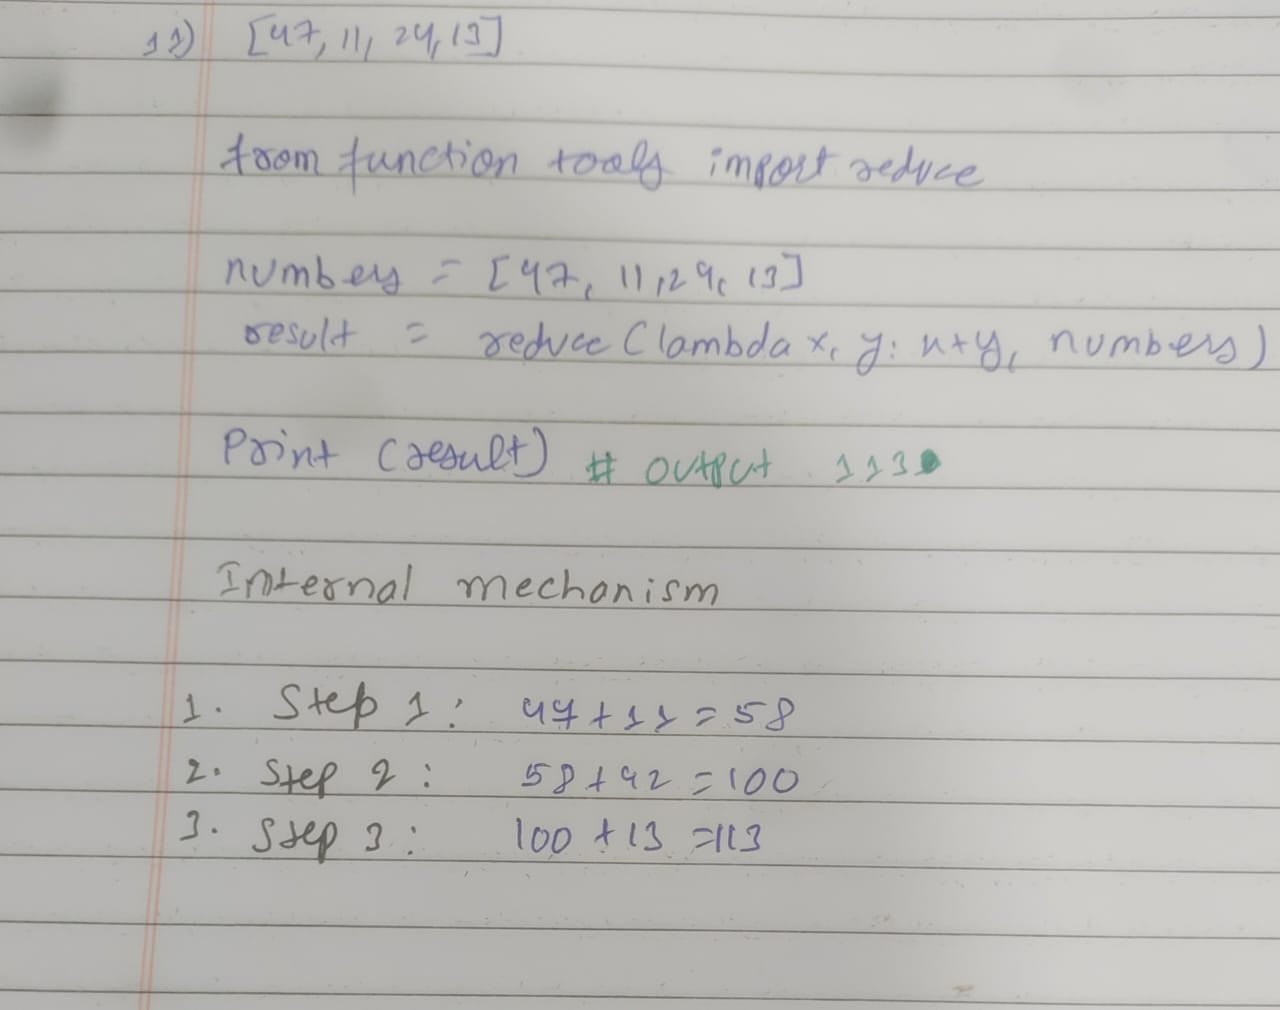 11) [47, 11, 24, 13]
from function tools import reduce
numbers = [47, 11, 24, 13]
result = reduce (lambda x, y: x+y, numbers)
Print (result) # output 113
Internal mechanism
1. Step 1: 47+11=58
2. Step 2: 58+42=100
3. Step 3: 100+13=113